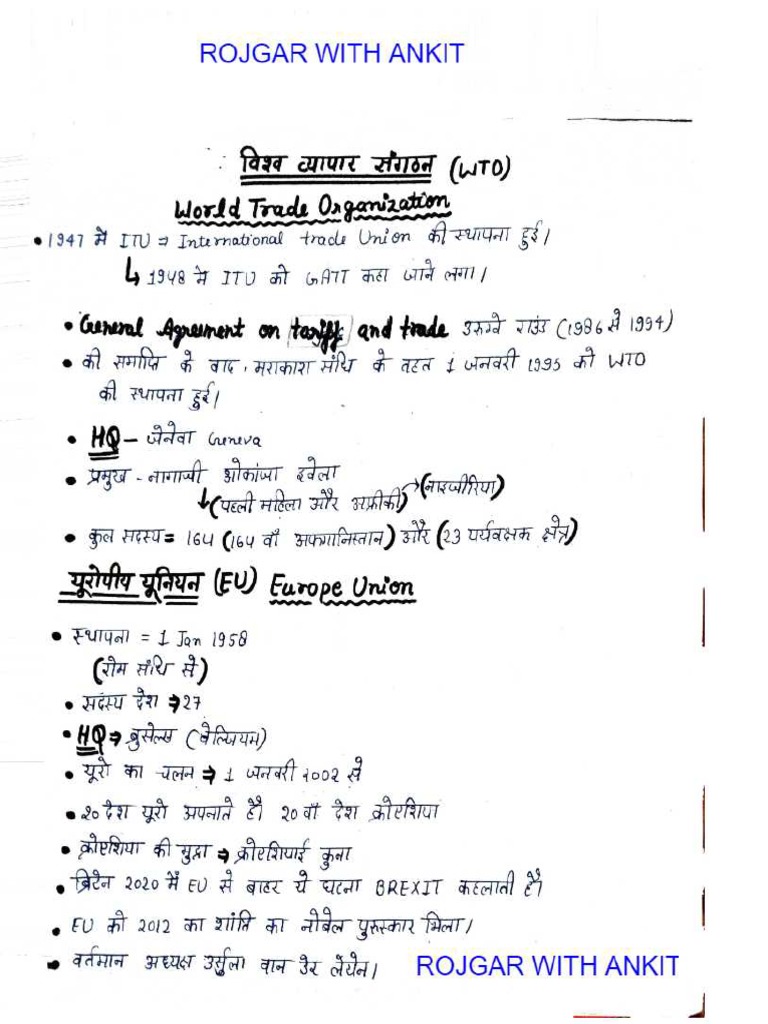 ROJGAR WITH ANKIT
विश्व व्यापार संगठन (WTO)
World Trade Organization
• 1947 में ITU ⇒ International trade Union की स्थापना हुई।
↳ 1948 में ITU को GATT कहा जाने लगा।
• General Agreement on tariff and trade उरुग्वे राउंड (1986 से 1994)
• की समाप्ति के बाद, मराकारा संधि के तहत 1 जनवरी 1995 को WTO
की स्थापना हुई।
• HQ – जेनेवा Geneva
• प्रमुख - नागाजी ओकांजा इवेला
↳ (पहली महिला और अफ्रीकी) → (नाइजीरिया)
• कुल सदस्य = 164 (164 वाँ अफगानिस्तान) और (23 पर्यवक्षक क्षेत्र)
यूरोपीय यूनियन (EU) Europe Union
• स्थापना = 1 Jan 1958
(रोम संधि से)
• सदस्य देश ⇒ 27
• HQ ⇒ ब्रुसेल्स (बेल्जियम)
• यूरो का चलन ⇒ 1 जनवरी 2002 से
• 20 देश यूरो अपनाते है। 20 वाँ देश क्रोएशिया
• क्रोएशिया की मुद्रा ⇒ क्रोएशियाई कुना
• ब्रिटेन 2020 में EU से बाहर ये घटना BREXIT कहलाती है।
• EU को 2012 का शांति का नोबेल पुरुस्कार मिला।
• वर्तमान अध्यक्ष उर्सुला वान डेर लेयेन।
ROJGAR WITH ANKIT